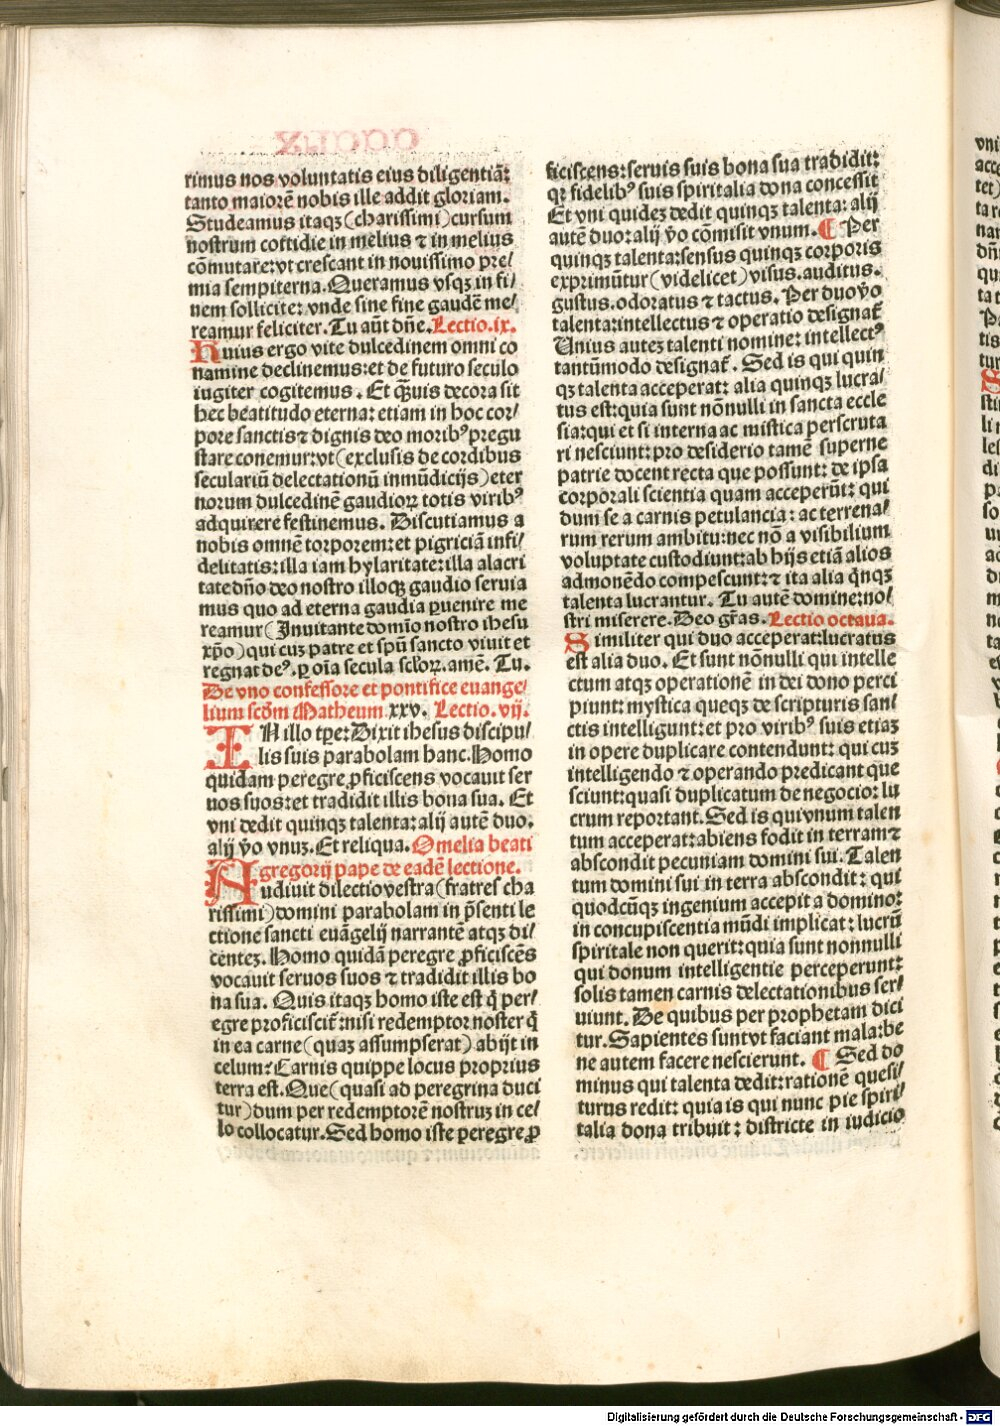 rimus nos voluntatis eius diligentiā:
tanto maiorē nobis ille addit gloriam.
Studeamus itaqꝫ (charissimi) cursum
nostrum cottidie in melius ⁊ in melius
cōmutare: vt crescant in nouissimo pre/
mia sempiterna. Queramus vsqꝫ in fi/
nem sollicite: vnde sine fine gaudē me/
reamur feliciter. Tu aūt dn̄e. Lectio .ix.
Huius ergo vite dulcedinem omni co
namine declinemus: et de futuro seculo
iugiter cogitemus. Et q̄uis decora sit
hec beatitudo eterna: etiam in hoc cor/
pore sanctis ⁊ dignis deo moribꝰ pregu
stare conemur: vt (exclusis de cordibus
seculariū delectationū inmūdicijs) eter
norum dulcedinē gaudioꝝ totis viribꝰ
adquirere festinemus. Discutiamus a
nobis omnē torporem: et pigriciā infi/
delitatis: illa iam hylaritate: illa alacri
tate dn̄o deo nostro illoqꝫ gaudio seruia
mus quo ad eterna gaudia ꝑuenire me
reamur (Inuitante domīo nostro ihesu
xp̄o) qui cuꝫ patre et sp̄u sancto viuit et
regnat deꝰ. ꝑ oīa secula scl̄oꝝ. amē. Tu.
De vno confessore et pontifice euange/
lium scd̄m Matheum .xxv. Lectio .vij.
IN illo tp̄e: Dixit ihesus discipu/
lis suis parabolam hanc. Homo
quidam peregre ꝓficiscens vocauit ser
uos suos: et tradidit illis bona sua. Et
vni dedit quinqꝫ talenta: alij autē duo.
alij v̄o vnuꝫ. Et reliqua. Omelia beati
gregorij pape de eadē lectione.
Audiuit dilectio vestra (fratres cha
rissimi) domini parabolam in p̄senti le
ctione sancti euāgelij narrantē atqꝫ di/
centeꝫ. Homo quidā peregre ꝓficiscēs
vocauit seruos suos ⁊ tradidit illis bo
na sua. Quis itaqꝫ homo iste est q̄ per/
egre proficiscit᷑: nisi redemptor noster q̄
in ea carne (quaꝫ assumpserat) abijt in
celum: Carnis quippe locus proprius
terra est. Que (quasi ad peregrina duci
tur) dum per redemptorē nostruꝫ in ce/
lo collocatur. Sed homo iste peregre ꝓ
ficiscens: seruis suis bona sua tradidit:
qꝛ fidelibꝰ suis spiritalia dona concessit
Et vni quideꝫ dedit quinqꝫ talenta: alij
autē duo: alij v̄o cōmisit vnum. ¶ Per
quinqꝫ talenta: sensus quinqꝫ corporis
exprimūtur (videlicet) visus. auditus.
gustus. odoratus ⁊ tactus. Per duo v̄o
talenta: intellectus ⁊ operatio designat᷑
Unius auteꝫ talenti nomine: intellectꝰ
tantūmodo designat᷑. Sed is qui quin
qꝫ talenta acceperat: alia quinqꝫ lucra/
tus est: quia sunt nōnulli in sancta eccle
sia: qui et si interna ac mistica perscruta
ri nesciunt: pro desiderio tamē superne
patrie docent recta que possunt: de ipsa
corporali scientia quam acceperūt: qui
dum se a carnis petulancia: ac terrena/
rum rerum ambitu: nec nō a visibilium
voluptate custodiunt: ab hijs etiā alios
admonēdo compescunt: ⁊ ita alia q̄nqꝫ
talenta lucrantur. Tu autē domine: no/
stri miserere. Deo gr̄as. Lectio octaua.
Similiter qui duo acceperat: lucratus
est alia duo. Et sunt nōnulli qui intelle
ctum atqꝫ operationē in dei dono perci
piunt: mystica queqꝫ de scripturis san/
ctis intelligunt: et pro viribꝰ suis etiaꝫ
in opere duplicare contendunt: qui cuꝫ
intelligendo ⁊ operando predicant que
sciunt: quasi duplicatum de negocio: lu
crum reportant. Sed is qui vnum talen
tum acceperat: abiens fodit in terram ⁊
abscondit pecuniam domini sui. Talen
tum domini sui in terra abscondit: qui
quodcūqꝫ ingenium accepit a domino:
in concupiscentia mūdi implicat: lucrū
spiritale non querit: quia sunt nonnulli
qui donum intelligentie perceperunt:
solis tamen carnis delectationibus ser/
uiunt. De quibus per prophetam dici
tur. Sapientes sunt vt faciant mala: be
ne autem facere nescierunt. ¶ Sed do
minus qui talenta dedit: rationē quesi/
turus redit: quia is qui nunc pie spiri/
talia dona tribuit: districte in iudicio
Digitalisierung gefördert durch die Deutsche Forschungsgemeinschaft - DFG